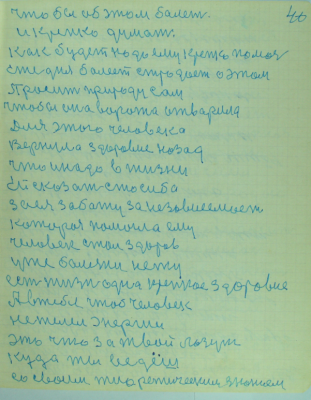 40
что бы об этом болет.
и крепко думат.
как будет надо ему крепко помоч
сегодня болет страдает о этом
Просит природу сам
чтобы она ворота отварила
Для этого человека
Вернула здоровие назад
что и надо в жизни
Ей сказат спосиба
за ея заботу за независимост
которая помогла ему
человек стал здоров
уже болезни нету
ест жизн одна крепкое здоровие
А в тебе чтоб человек
не имел энергии
это что за твой лозунг
куда ты ведёш
со своим теоретическим знанием